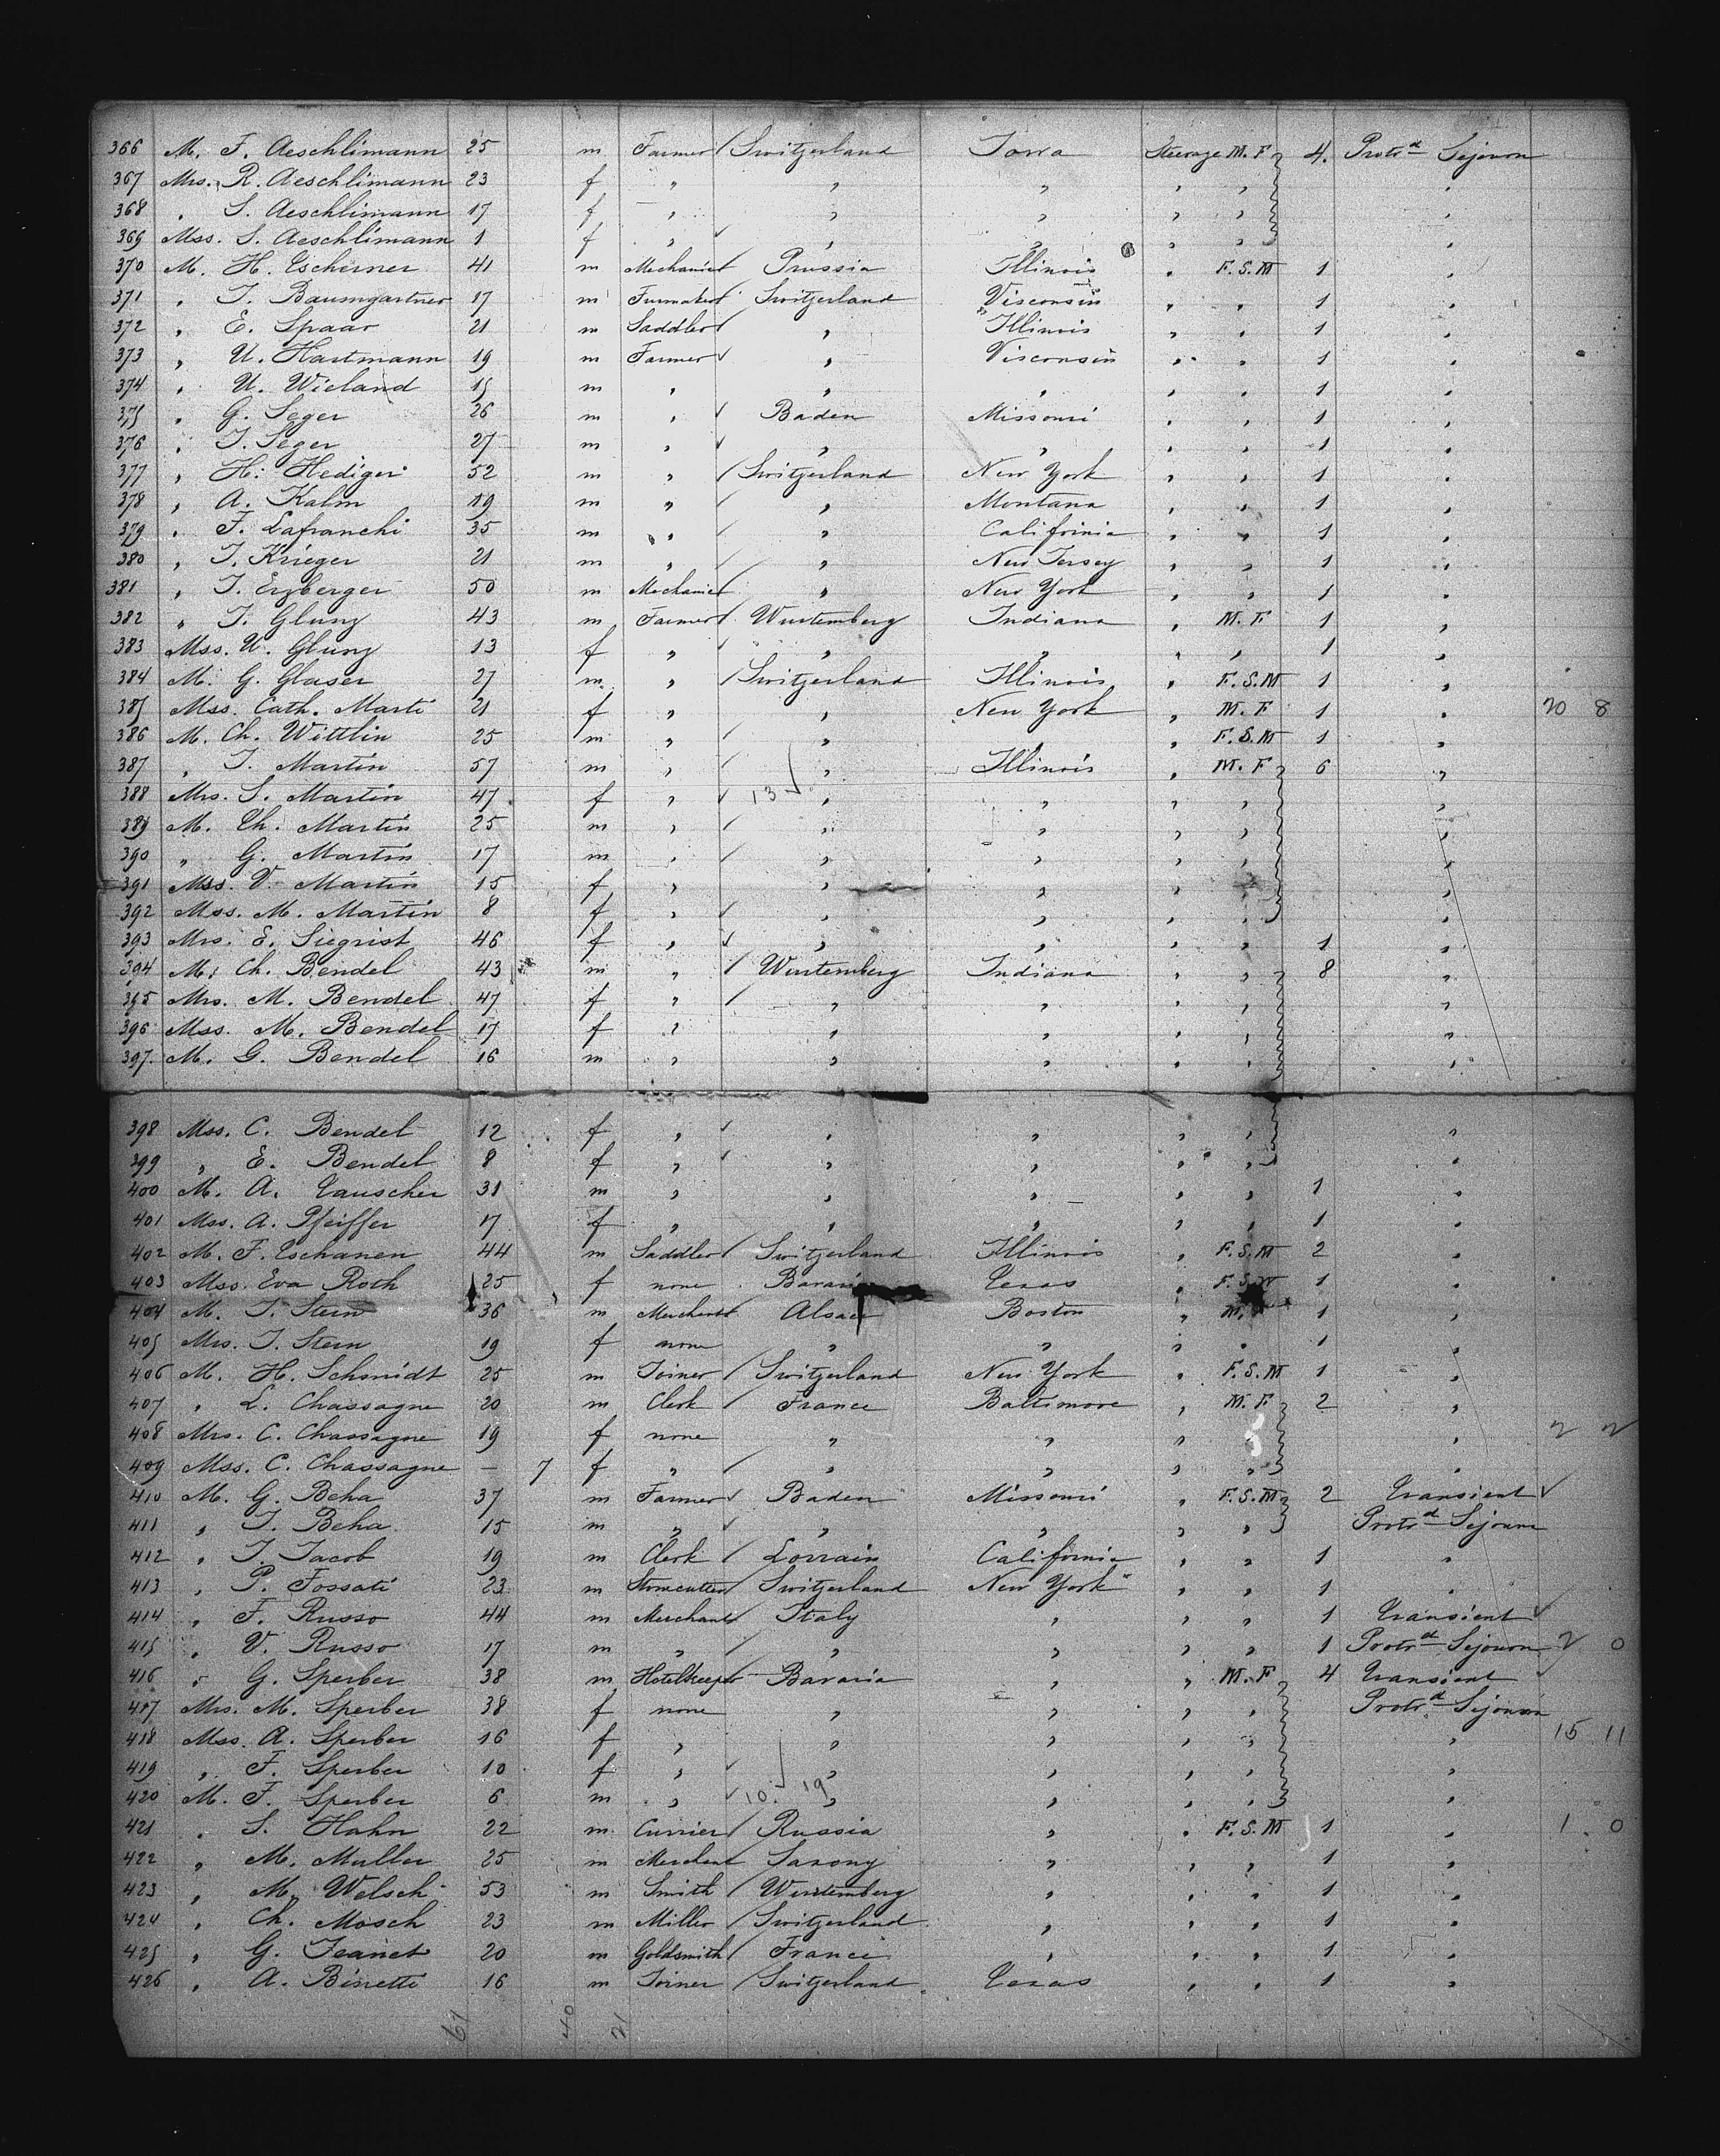 366 M. F. Aeschlimann 25 m Farmer Switzerland Iowa Steerage M. F 4. Protrd Sejourn
367 Mrs. R. Aeschlimann 23 f " " " " " "
368 " S. Aeschlimann 17 f " " " " " "
369 Mss. S. Aeschlimann 1 f " " " " " "
370 M. H. Escherner 41 m Mechanic Prussia Illinois " F. S. M 1 "
371 " J. Baumgartner 17 m Switzerland Visconsin " " 1 "
372 " E. Spaar 21 m Saddler " Illinois " " 1 "
373 " U. Hartmann 19 m Farmer " Visconsin " " 1 "
374 " U. Wieland 15 m " " " " " 1 "
375 " G. Seger 26 m " Baden Missouri " " 1 "
376 " J. Seger 27 m " " " " " 1 "
377 " H. Hediger 52 m " Switzerland New York " " 1 "
378 " A. Kalm 19 m " " Montana " " 1 "
379 " F. Lafranchi 35 m " " California " " 1 "
380 " J. Krieger 21 m " " New Jersey " " 1 "
381 " J. Erzberger 50 m Mechanic " New York " " 1 "
382 " J. Glunz 43 m Farmer Wurtemberg Indiana " M. F 1 "
383 Mss. U. Glunz 13 f " " " " " 1 "
384 M. G. Glaser 27 m " Switzerland Illinois " F. S. M 1 "
385 Mss. Cath. Marti 21 f " " New York " M. F 1 " 20 8
386 M. Ch. Wittlin 25 m " " " " F. S. M 1 "
387 " J. Martin 57 m " " Illinois " M. F 6 "
388 Mrs. S. Martin 47 f " 13 " " " " "
389 M. Ch. Martin 25 m " " " " " "
390 " G. Martin 17 m " " " " " "
391 Mss. V. Martin 15 f " " " " " "
392 Mss. M. Martin 8 f " " " " " "
393 Mrs. E. Siegrist 46 f " " " " " 1 "
394 M. Ch. Bendel 43 m " Wurtemberg Indiana " " 8 "
395 Mrs. M. Bendel 47 f " " " " " "
396 Mss. M. Bendel 17 f " " " " " "
397 M. G. Bendel 16 m " " " " " "
398 Mss. C. Bendel 12 f " " " " " "
399 " E. Bendel 8 f " " " " " "
400 M. A. Tauscher 31 m " " " " " 1 "
401 Mss. A. Pfeiffer 17 f " " " " " 1 "
402 M. F. Eschanen 44 m Saddler Switzerland Illinois " F. S. M 2 "
403 Mss. Eva Roth 25 f none Bavaria Texas " F. S. 1 "
404 M. J. Stein 36 m Merchant Alsace Boston " M. 1 "
405 Mrs. J. Stein 19 f none " " " " 1 "
406 M. H. Schmidt 25 m Joiner Switzerland New York " F. S. M 1 "
407 " L. Chassagne 20 m Clerk France Baltimore " M. F 2 "
408 Mrs. C. Chassagne 19 f none " " " " 2 2
409 Mss. C. Chassagne — 7 f " " " " " "
410 M. G. Beha 37 m Farmer Baden Missouri " F. S. M 2 Transient
411 " J. Beha 15 m " " " " " Protrd Sejourn
412 " J. Jacob 19 m Clerk Lorrain California " " 1 "
413 " P. Fossati 23 m Stonecutter Switzerland New York " " 1 "
414 " F. Russo 44 m Merchant Italy " " " 1 Transient
415 " V. Russo 17 m " " " " " 1 Protrd Sejourn 2 0
416 " G. Sperber 38 m Hotelkeeper Bavaria " " M. F 4 Transient
417 Mrs. M. Sperber 38 f none " " " " Protrd Sejourn
418 Mss. A. Sperber 16 f " " " " " " 15 11
419 " F. Sperber 10 f " " " " " "
420 M. F. Sperber 6 m " 10. 19 " " " " "
421 " S. Hahn 22 m Currier Russia " " F. S. M 1 " 1 0
422 " M. Muller 25 m Saxony " " " 1 "
423 " M. Welsch 53 m Smith Wurtemberg " " " 1 "
424 " Ch. Mosch 23 m Miller Switzerland " " " 1 "
425 " G. Jeanet 20 m Goldsmith France " " " 1 "
426 " A. Binetti 16 m Joiner Switzerland Texas " " 1 "
61 40 21